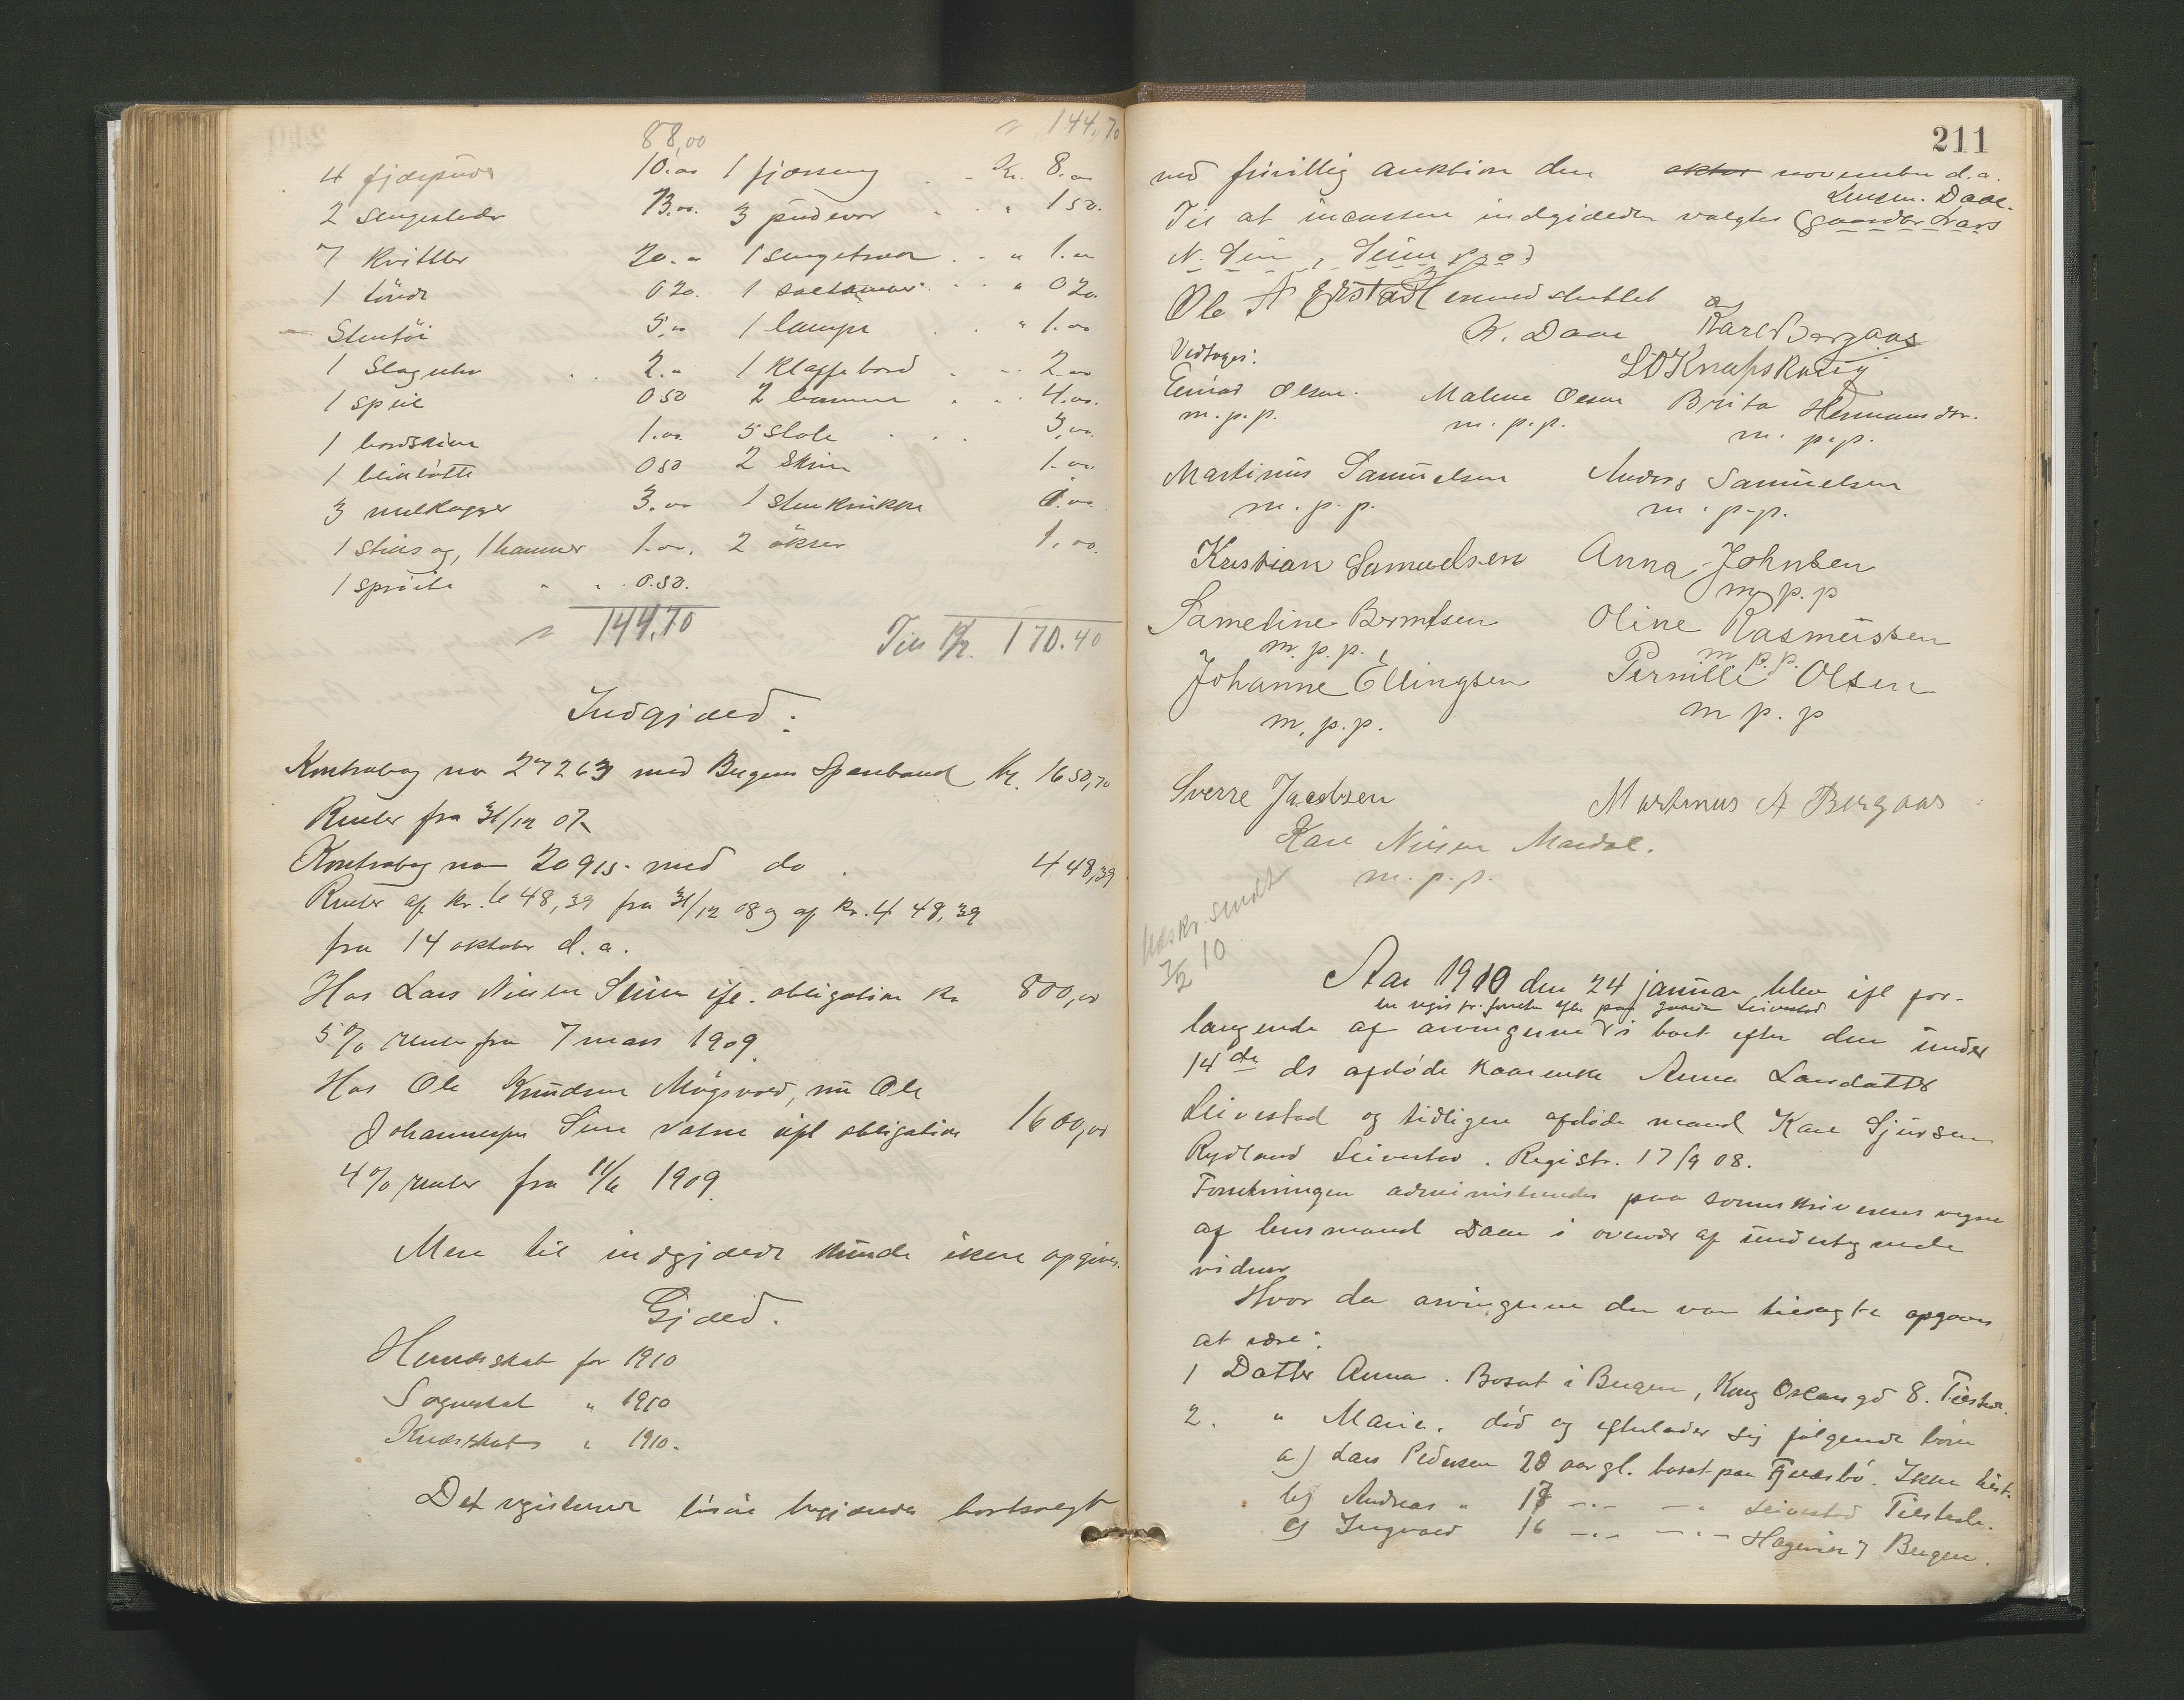 88,00 " 144,70
4 fjærpuder 10.00 1 fjærseng Kr. 8.00
2 sengesteder 13.00. 3 pudevor " 1 50.
7 kvitler 20.00 1 sengetvær " 1.00
1 tönde 0 20. 1 " 0 20.
Stentöi 5.00 1 lampe " 1.00
1 Slaguhr 2.00 1 klaffebord 2.00
1 speil 0 50 2 4.00.
1 bordskive 1.00. 5 stole 3,00.
1 0 50 2 Skrin 1.00.
3 melkagger 3.00 1 1.00.
1 stiksag, 1 hammer 1.00. 2 økser 1,00.
1 0.50.
" 144,70 Til Kr. 170.40
Indgjæld:
Kontrabog no 27263 med Bergens Sparebank Kr. 1650,70
Renter fra 31/12 07
Kontrabog no 20915 med do 448,39
Renter af kr. 648,39 fra 31/12 08 og af kr. 448,39
fra 14 oktober d.a.
Hos Lars Nilsen Seim ifl. obligation kr 800,00
5% renter fra 7 mars 1909.
Hos Ole Knudsen Mögsvold, nu Ole
Johannessen Seim ifl obligation 1600,00
4% renter fra 11/6 1909.
Mere til indgjæld kunde ikke opgives.
Gjæld.
Herredsskat for 1910
Sogneskat " 1910
" 1910.
Det registrerede lösöre begjæredes bortsolgt
211
ved frivillig auktion den oktor november d.a.
Lensm. Daae.
Til at incassere indgjælden valgtes (gaardbr Lars
N. Seim, Seim
Ole A Ekstad
A. Daae Karl Bergaas
Vedtages: L O Knapskaug
Einar Olsen. Malene Olsen Brita Hermansdtr.
m.p.p. m.p.p. m.p.p.
Martinus Samuelsen Anders Samuelsen
m.p.p. m.p.p.
Kristian Samuelsen Anna Johnsen
m p.p
Sameline Berntsen Oline Rasmussen
m.p.p. m p.p.
Johanne Ellingsen Pernille Olsen
m.p.p. m p.p
Sverre Jacobsen Martinus A Bergaas
Karl Nilsen Mardal.
m.p.p.
Udskr. sendt
3/2 10
Aar 1910 den 24 januar blev ifl for-
en regis tr. forretn. efter paa gaarden Leivestad
langende af arvingerne i boet efter den under
14de ds afdöde kaarenke Anna Larsdatter
Leivestad og tidligere afdöde mand Karl Sjursen
Rydland Leivestad. Registr. 17/9 08.
Forretningen administreredes paa sorenskriverens vegne
af lensmand Daae i overvær af undertegnede
vidner
Hvor da arvingerne der var tilsagte opgaves
at være:
1 Datter Anna. Bosat i Bergen, Kong Oscars gd 8. Tilstede.
2. " Marie. död og efterlader sig fölgende börn
a) Lars Pedersen 20 aar gl. bosat paa Ikke tilst.
b) Andreas " 18 -"- -"- Leivestad Tilstede.
c) Ingvald 16 -"- -"- Bergen.